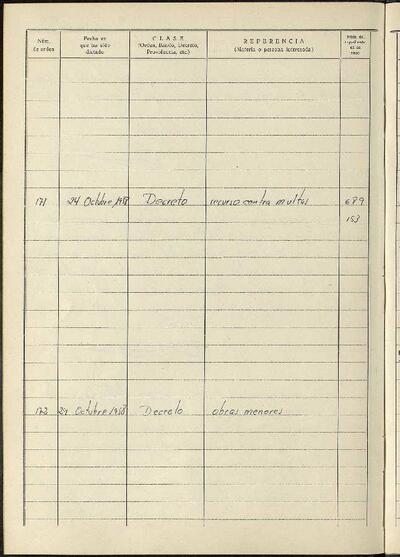 Núm. de orden
Fecha en que ha sido dictado
CLASE (Orden, Bando, Decreto, Providencia, etc.)
REFERENCIA (Materia o persona interesada)
171 24 Octubre, 1958 Decreto recurso contra multas 689
153
172 29 Octubre 1958 Decreto obras menores